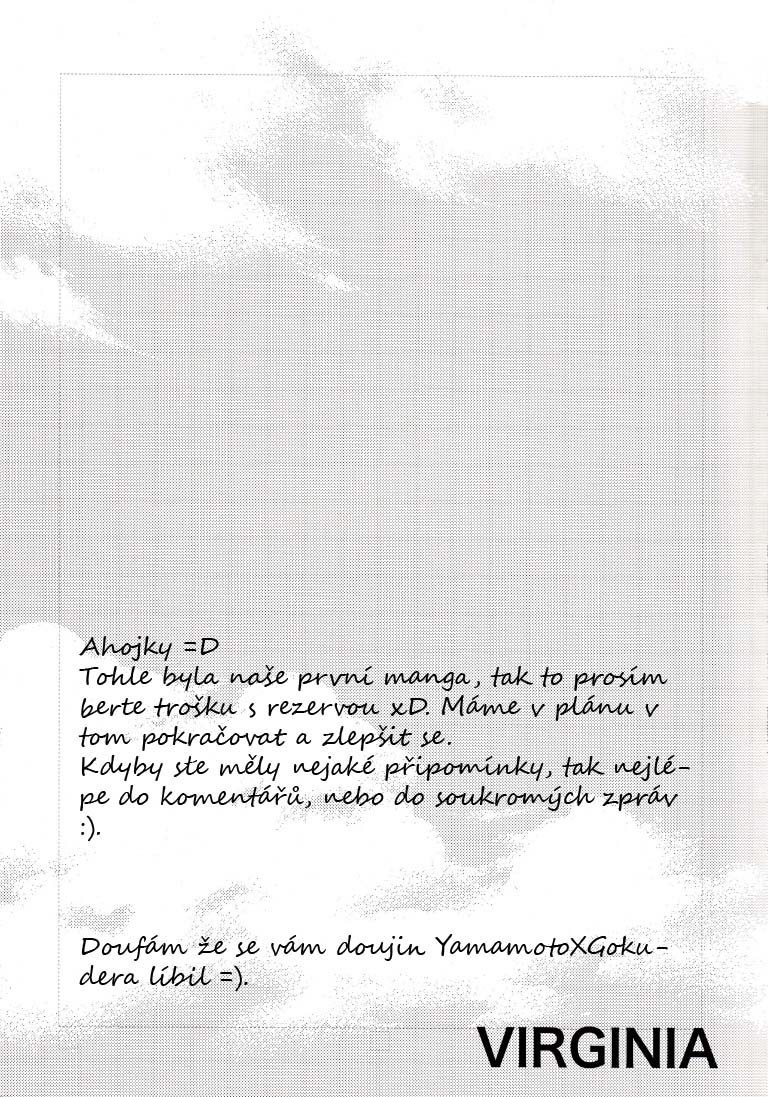 Ahojky =D
Tohle byla naše první manga, tak to prosím
berte trošku s rezervou xD. Máme v plánu v
tom pokračovat a zlepšit se.
Kdyby ste měly nejaké připomínky, tak nejlé-
pe do komentářů, nebo do soukromých zpráv
:).
Doufám že se vám doujin YamamotoXGoku-
dera líbil =).
VIRGINIA